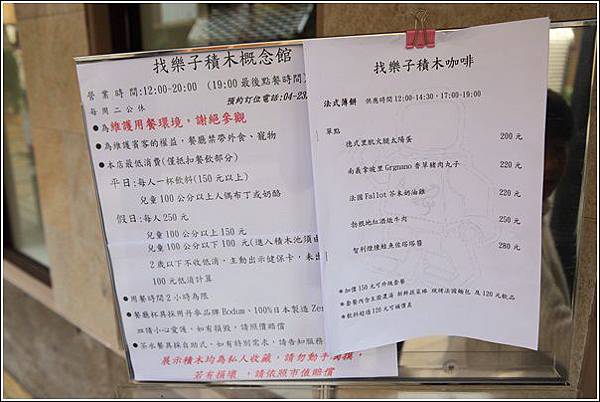 找樂子積木概念館
營業時間:12:00-20:00 (19:00最後點餐時間)
每周二公休
預約訂位電話:04-23
●為維護用餐環境，謝絕參觀
●為維護賓客的權益，餐廳禁帶外食、寵物
●本店最低消費(僅抵扣餐飲部分)
平日:每人一杯飲料(150元以上)
兒童100公分以上人偶布丁或奶酪
假日:每人250元
兒童100公分以上150元
兒童100公分以下100元(進入積木池須由
2歲以下不收低消，主動出示健保卡，未出
100元低消計算
●用餐時間2小時為限
●餐廳杯具採用丹麥品牌Bodum、100%日本製造Zer
請小心愛護，如有損毀，請照價賠償
●茶水餐具採自助式，如有特別需求，請告知服務
展示積木均為私人收藏，請勿動手觸摸，
若有損壞，請依照市值賠償
找樂子積木咖啡
法式薄餅 供應時間12:00-14:30，17:00-19:00
單點
德式里肌火腿太陽蛋 200元
南義拿坡里Grgnano香草豬肉丸子 220元
法國Fallot芥末奶油雞 220元
勃根地紅酒燉牛肉 250元
智利煙燻鮭魚佐塔塔醬 280元
●加價150元可升級套餐
●套餐內含主廚濃湯 新鮮蔬菜棒 現烤法國麵包 及120元飲品
●飲料超過120元可補價差